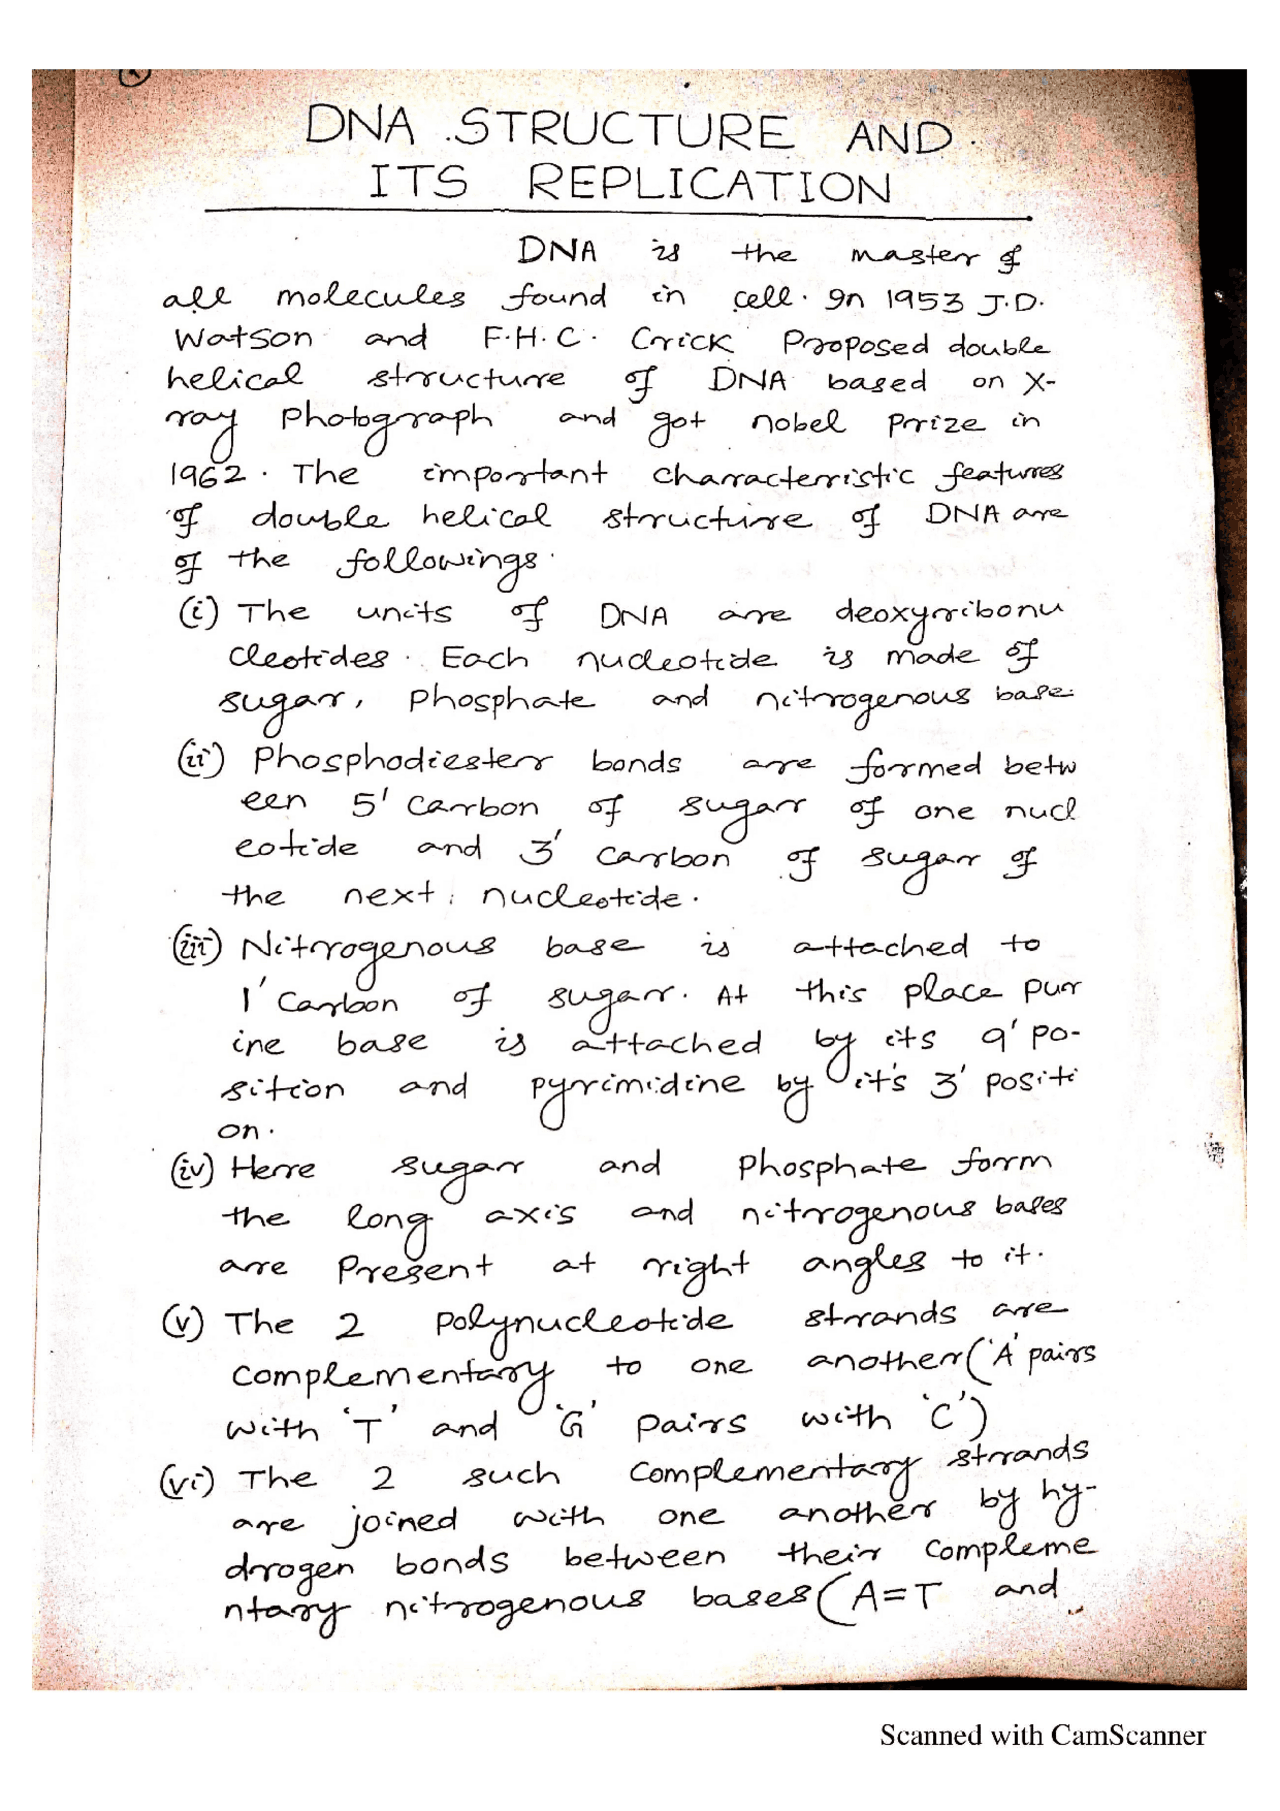 DNA STRUCTURE AND
ITS REPLICATION
DNA is the master of
all molecules found in cell. In 1953 J.D.
Watson and F.H.C. Crick Proposed double
helical structure of DNA based on X-
ray Photograph and got nobel Prize in
1962. The important characteristic features
of double helical structure of DNA are
of the followings.
(i) The units of DNA are deoxyribonu
cleotides. Each nucleotide is made of
sugar, Phosphate and nitrogenous base.
(ii) Phosphodiester bonds are formed betw
een 5' carbon of sugar of one nucl
eotide and 3' carbon of sugar of
the next nucleotide.
(iii) Nitrogenous base is attached to
1' Carbon of sugar. At this place pur
ine base is attached by its 9' po-
sition and pyrimidine by it's 3' positi
on.
(iv) Here sugar and Phosphate form
the long axis and nitrogenous bases
are Present at right angles to it.
(v) The 2 Polynucleotide strands are
complementary to one another ('A' pairs
with 'T' and 'G' pairs with 'C')
(vi) The 2 such complementary strands
are joined with one another by hy-
drogen bonds between their compleme
ntary nitrogenous bases (A=T and
Scanned with CamScanner